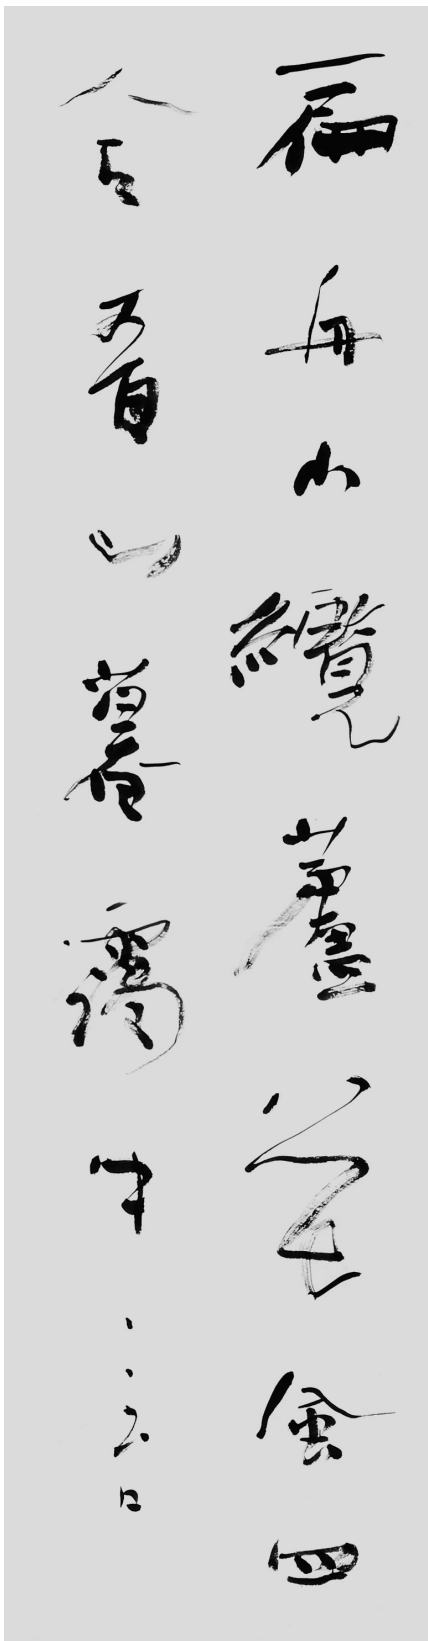 扁舟小纜蘆花風四
合青山暮靄中